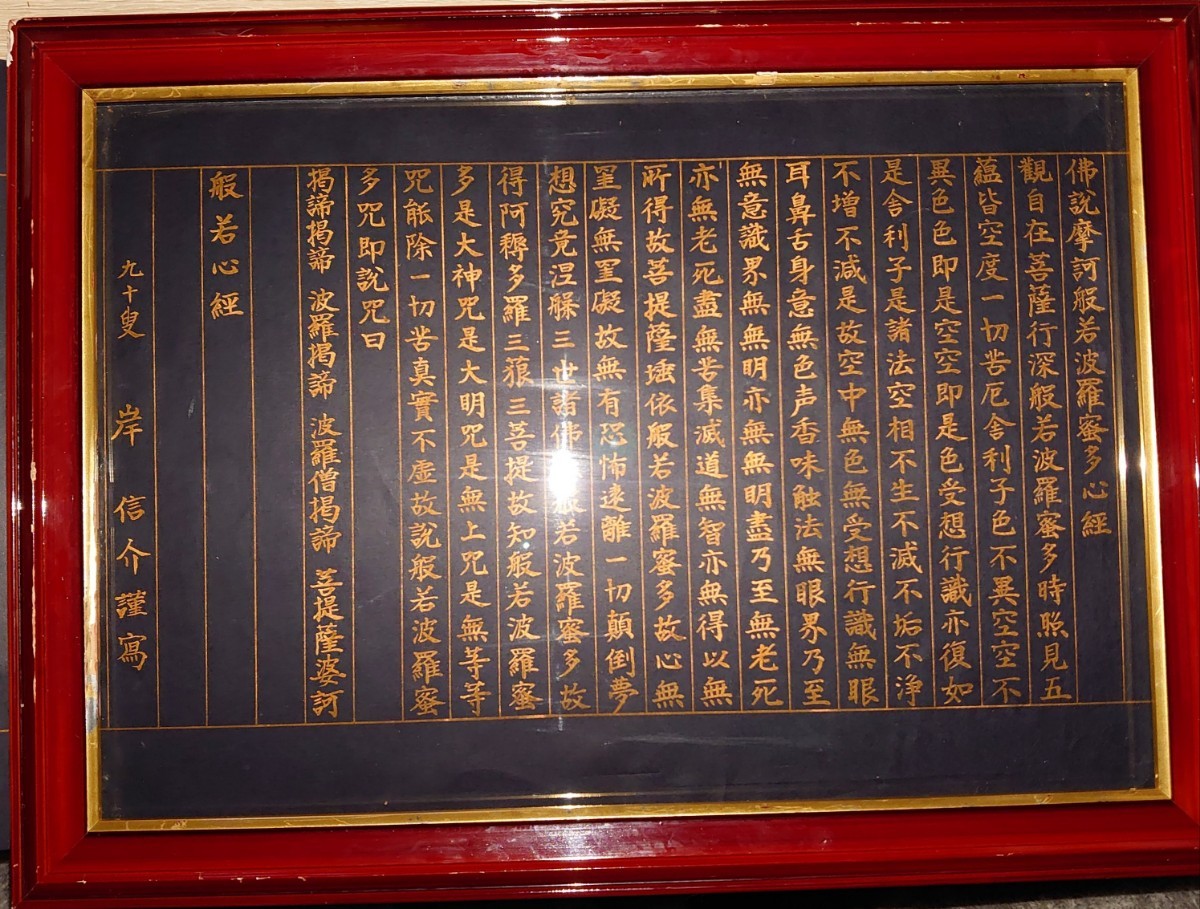 佛說摩訶般若波羅蜜多心經
觀自在菩薩行深般若波羅蜜多時照見五
蘊皆空度一切苦厄舍利子色不異空空不
異色色即是空空即是色受想行識亦復如
是舍利子是諸法空相不生不滅不垢不浄
不增不減是故空中無色無受想行識無眼
耳鼻舌身意無色声香味触法無眼界乃至
無意識界無無明亦無無明盡乃至無老死
亦無老死盡無苦集滅道無智亦無得以無
所得故菩提薩埵依般若波羅蜜多故心無
罣礙無罣礙故無有恐怖遠離一切顛倒夢
想究竟涅槃三世諸佛 若波羅蜜多故
得阿耨多羅三藐三菩提故知般若波羅蜜
多是大神咒是大明咒是無上咒是無等等
咒能除一切苦真實不虛故說般若波羅蜜
多咒即說咒曰
揭諦揭諦 波羅揭諦 波羅僧揭諦 菩提薩婆訶
般若心經
九十叟 岸 信介謹寫